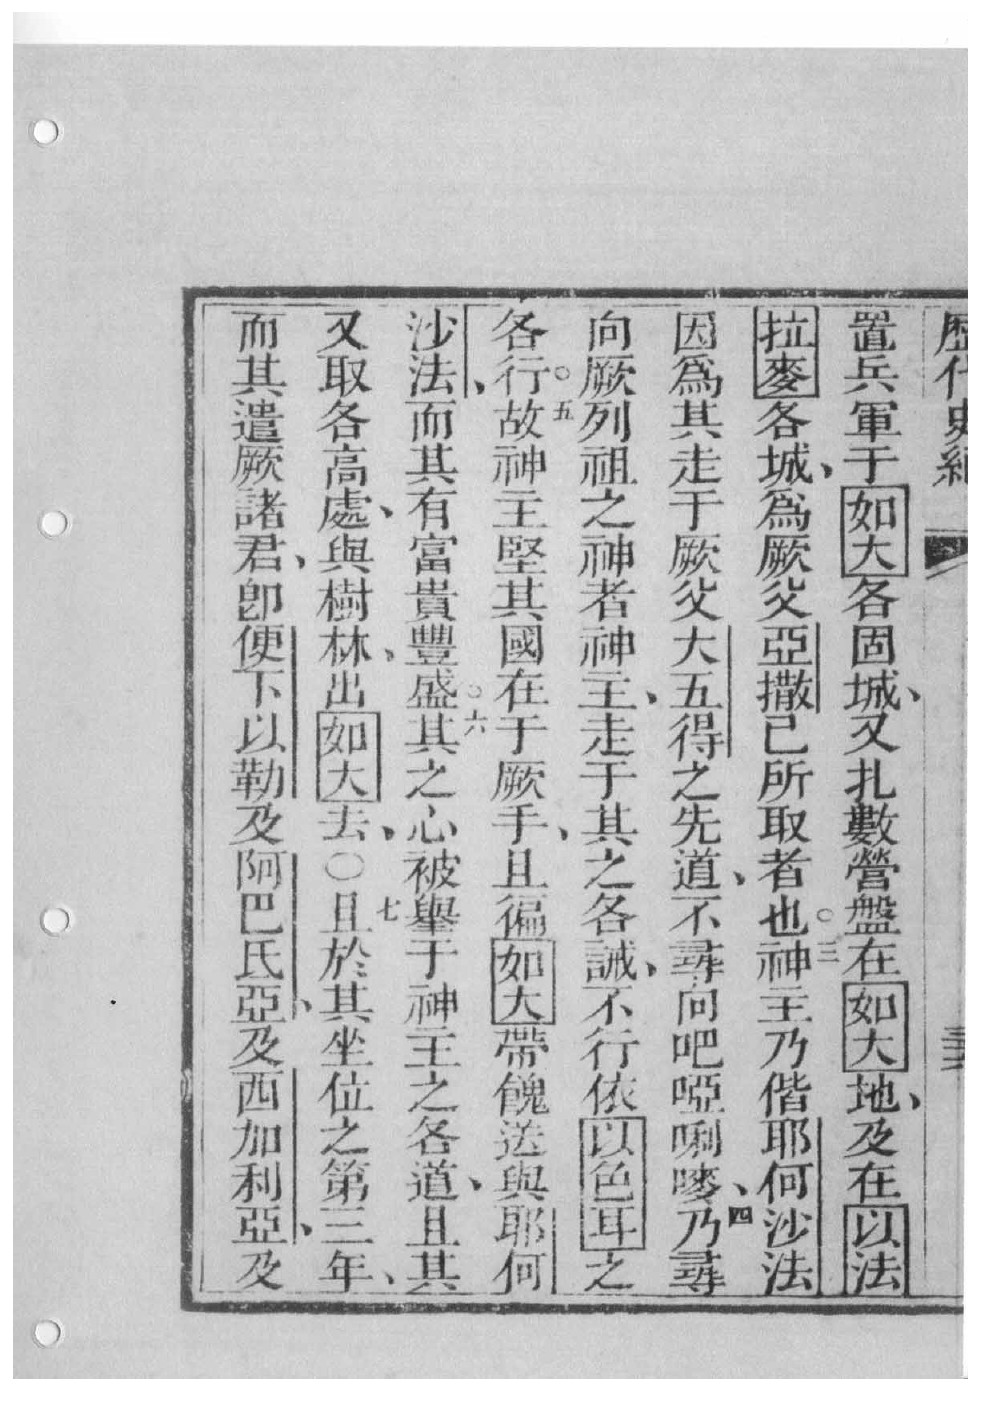 歷代史紀
置兵軍于如大各固城、又扎數營盤在如大地、及在以法
拉麥各城、爲厥父亞撒已所取者也○三神主乃偕耶何沙法
因爲其走于厥父大五得之先道、不尋向吧啞唎嘜、四乃尋
向厥列祖之神者神主、走于其之各誡、不行依以色耳之
各行○五故神主堅其國在于厥手、且徧如大帶餽送與耶何
沙法、而其有富貴豐盛○六其之心被舉于神主之各道、且其
又取各高處、與樹林、出如大去、○七且於其坐位之第三年、
而其遣厥諸君、卽便下以勒及阿巴氏亞、及西加利亞、及